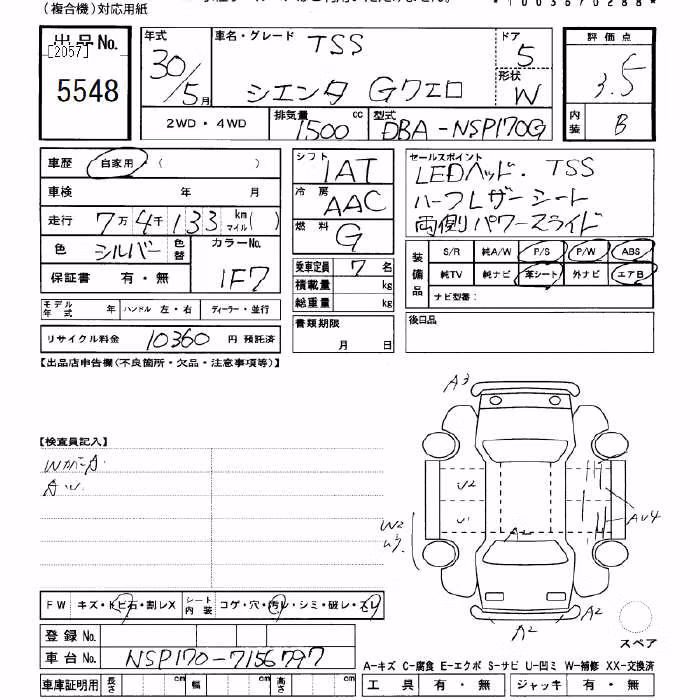 (複合機)対応用紙
*1003670288*
出品No.
[2057]
5548
年式 30/5月
車名・グレード TSS
シエンタ Gクエロ
ドア 5
形状 W
評価点
3.5
内装 B
2WD・4WD
排気量 1500 cc
型式 DBA-NSP170G
車歴 自家用・( )
車検 年 月
走行 7万4千133 km マイル( )
色 シルバー 色替 カラーNo. 1F7
保証書 有・無
モデル年式 年 ハンドル 左・右 ディーラー・並行
リサイクル料金 10360 円 預託済
シフト 1AT
冷房 AAC
燃料 G
乗車定員 7 名
積載量 kg
総重量 kg
書類期限
月 日
セールスポイント
LEDヘッド. TSS
ハーフレザーシート
両側パワースライド
装備品
S/R 純A/W P/S P/W ABS
純TV 純ナビ 革シート 外ナビ エアB
ナビ型番:
後日品
【出品店申告欄(不良箇所・欠品・注意事項等)】
【検査員記入】
A3
U2
U1
W2
A2
AU4
A2
A2
スペア
FW キズ・トビ石・割レX
シート内装 コゲ・穴・汚レ・シミ・破レ・スレ
登録No.
車台No. NSP170-7156797
車庫証明用 長さ cm 幅 cm 高さ cm
A-キズ C-腐食 E-エクボ S-サビ U-凹ミ W-補修 XX-交換済
工具 有・無 ジャッキ 有・無